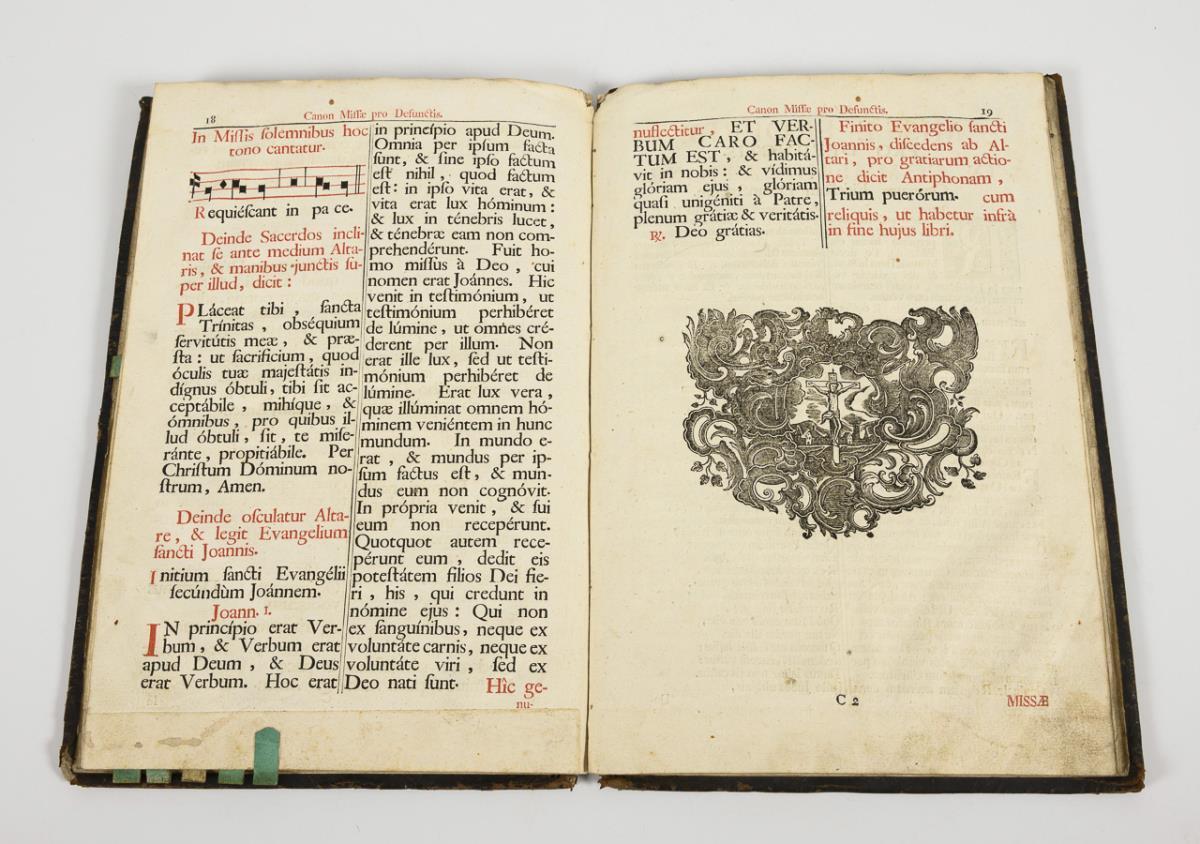 18
Canon Missæ pro Defunctis.
In Missis solemnibus hoc
tono cantatur.
Requiéscant in pa ce.
Deinde Sacerdos incli-
nat se ante medium Alta-
ris, & manibus junctis su-
per illud, dicit :
PLáceat tibi, sancta
Trínitas, obséquium
servitútis meæ, & præ-
sta : ut sacrificium, quod
óculis tuæ majestátis in-
dígnus óbtuli, tibi sit ac-
ceptábile, mihíque, &
ómnibus, pro quibus il-
lud óbtuli, sit, te mise-
ránte, propitiábile. Per
Christum Dóminum no-
strum, Amen.
Deinde osculatur Alta-
re, & legit Evangelium
sancti Joannis.
Initium sancti Evangélii
secúndùm Joánnem.
Joann. 1.
IN princípio erat Ver-
bum, & Verbum erat
apud Deum, & Deus
erat Verbum. Hoc erat
in princípio apud Deum.
Omnia per ipsum facta
sunt, & sine ipso factum
est nihil, quod factum
est : in ipso vita erat, &
vita erat lux hóminum :
& lux in ténebris lucet,
& ténebræ eam non com-
prehendérunt. Fuit ho-
mo missus à Deo, cui
nomen erat Joánnes. Hic
venit in testimónium, ut
testimónium perhibéret
de lúmine, ut omnes cré-
derent per illum. Non
erat ille lux, sed ut testi-
mónium perhibéret de
lúmine. Erat lux vera,
quæ illúminat omnem hó-
minem veniéntem in hunc
mundum. In mundo e-
rat, & mundus per ip-
sum factus est, & mun-
dus eum non cognóvit.
In própria venit, & sui
eum non recepérunt.
Quotquot autem rece-
pérunt eum, dedit eis
potestátem filios Dei fie-
ri, his, qui credunt in
nómine ejus : Qui non
ex sanguínibus, neque ex
voluntáte carnis, neque ex
voluntáte viri, sed ex
Deo nati sunt. Hìc ge-
nu-
Canon Missæ pro Defunctis.
19
nuflectitur, ET VER-
BUM CARO FAC-
TUM EST, & habitá-
vit in nobis : & vídimus
glóriam ejus, glóriam
quasi unigéniti à Patre,
plenum grátiæ & veritátis.
℟. Deo grátias.
Finito Evangelio sancti
Joannis, discedens ab Al-
tari, pro gratiarum actio-
ne dicit Antiphonam,
Trium puerórum. cum
reliquis, ut habetur infrà
in fine hujus libri.
C 2
MISSÆ